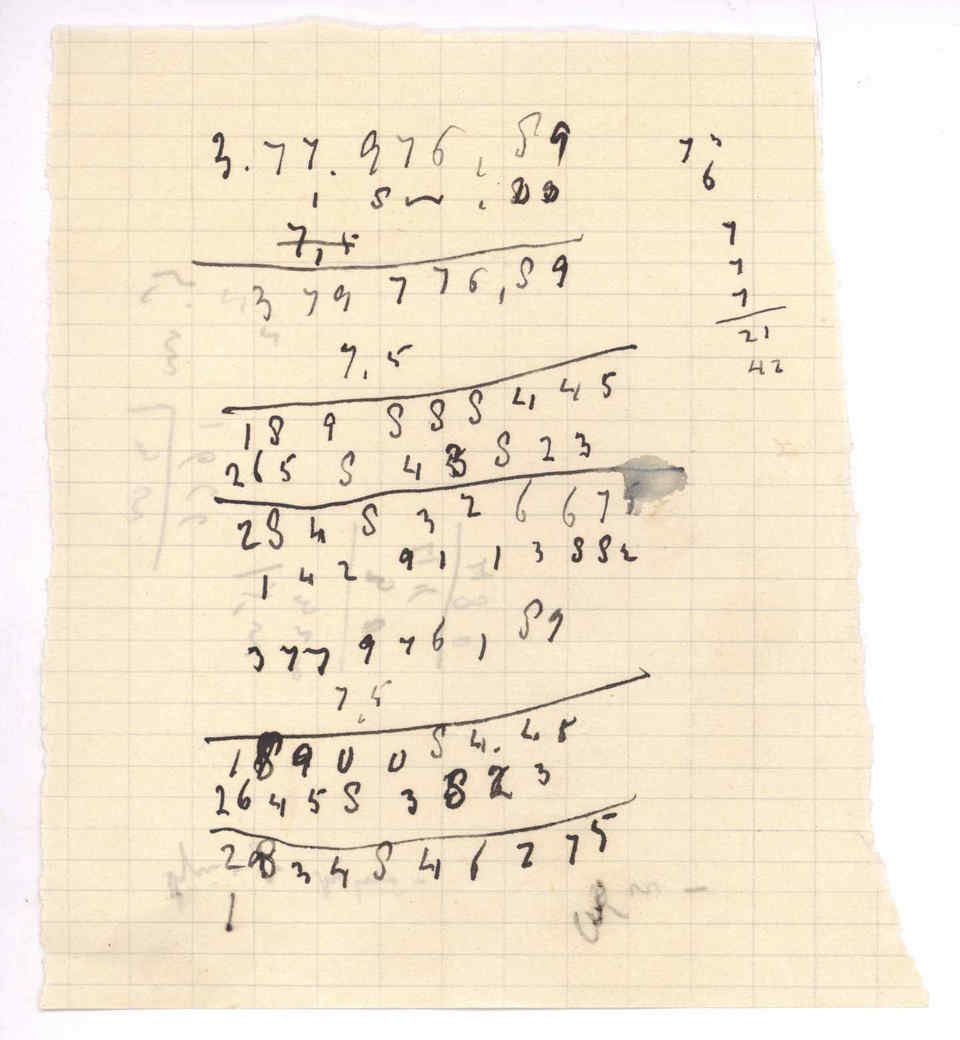 3.77.976,89
1 8 — .00
7,5
379 776,89
7,5
189 888 4,45
265 8 438 23
284 8 326 675
1 4 2 91 1 3 882
377 976,89
7,5
1890084.45
264583823
2834846275
1
73
6
7
7
7
21
42